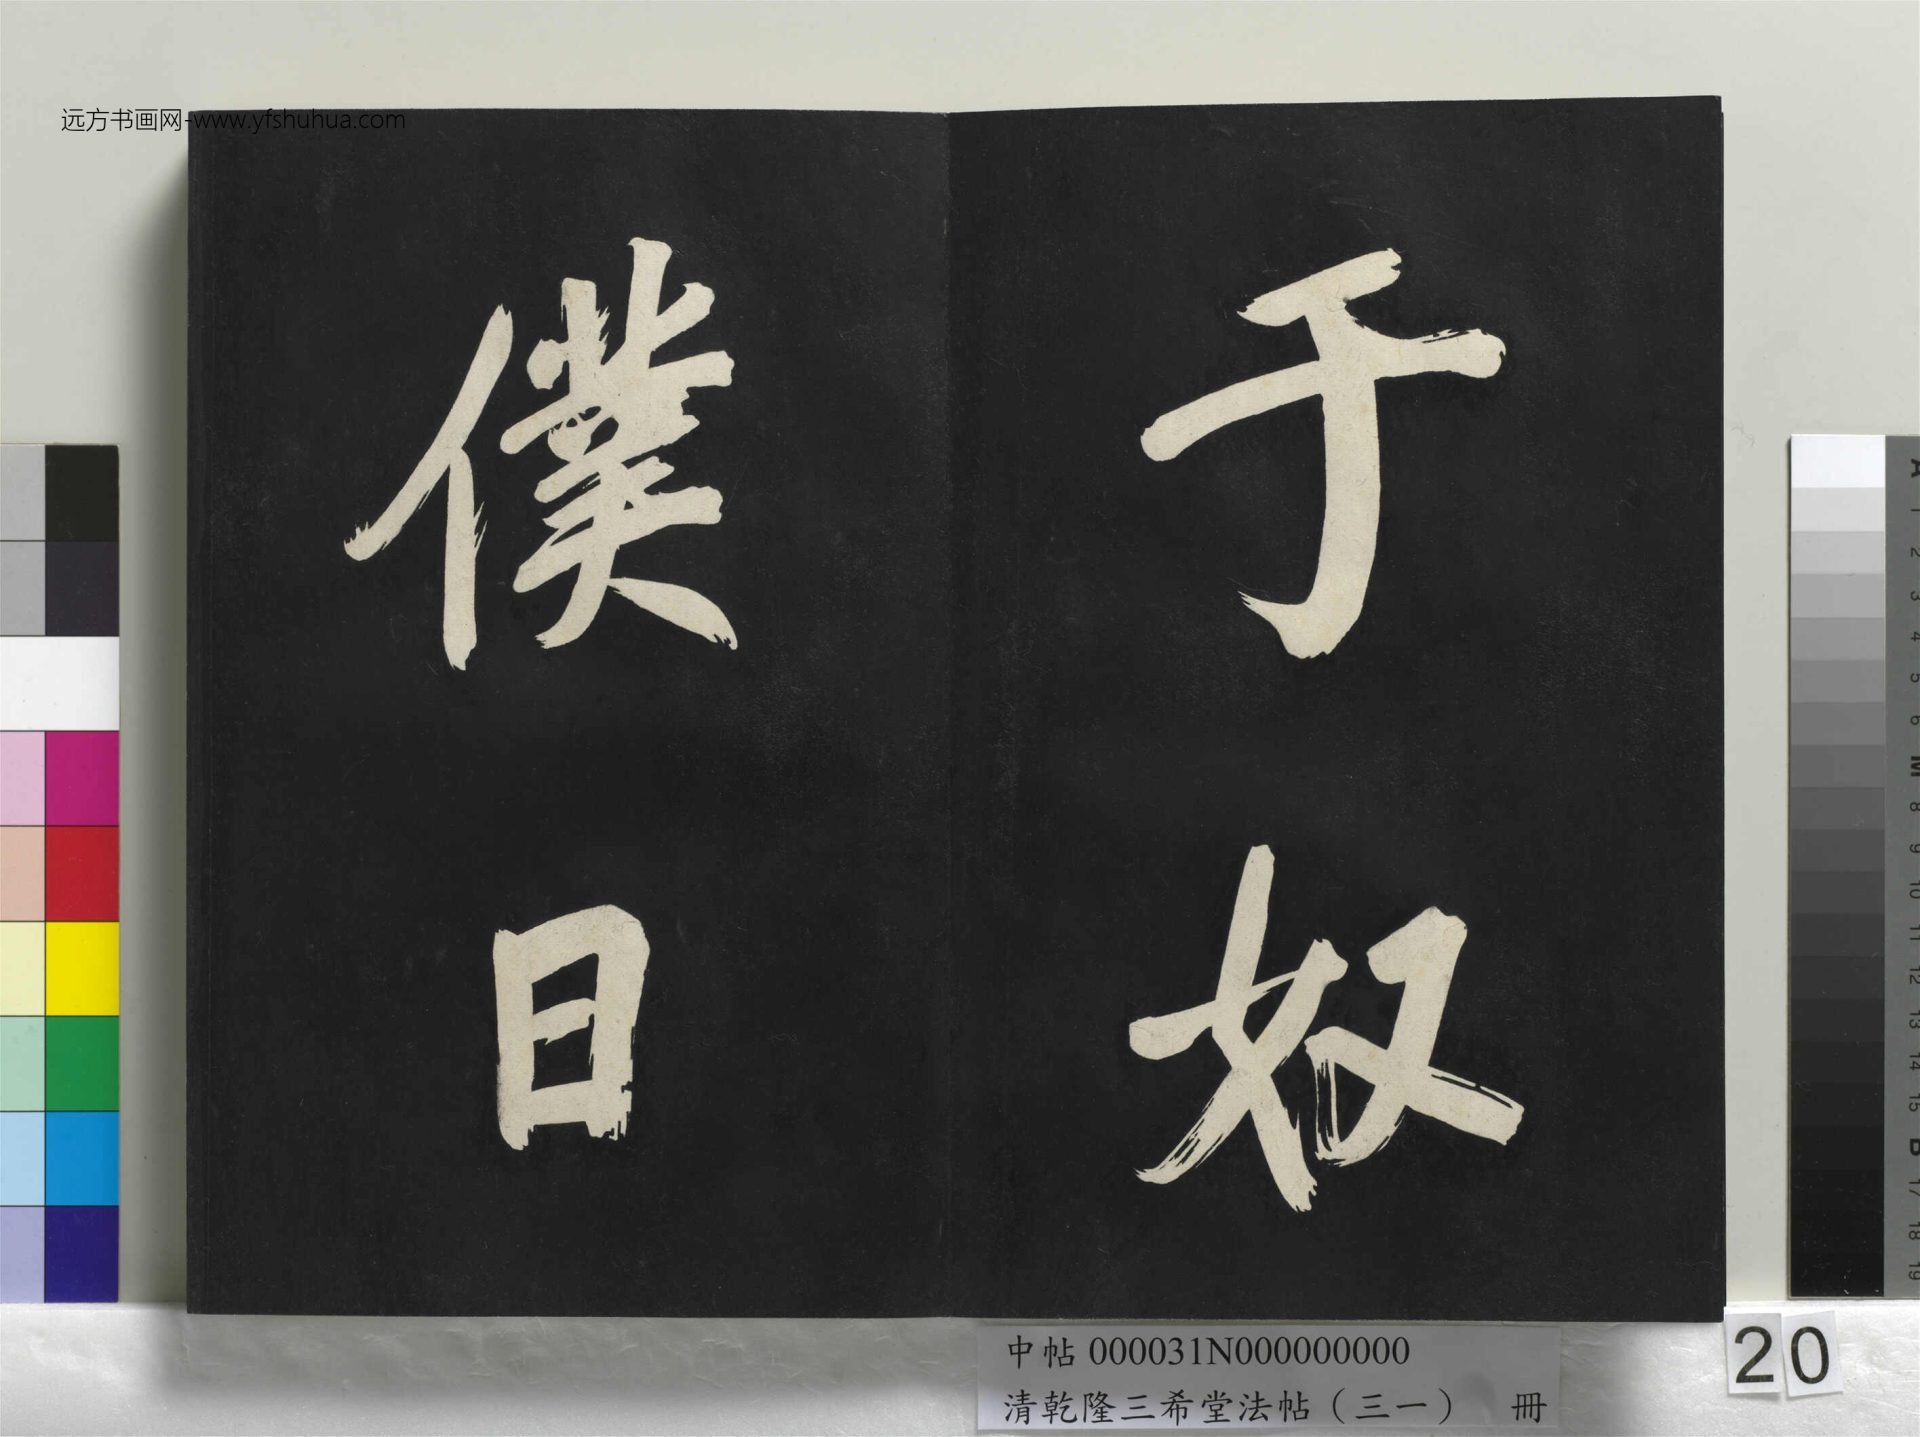 远方书画网-www.yfshuhua.com
于奴
僕日
中帖 000031N000000000
清乾隆三希堂法帖（三一） 冊
20
A 1 2 3 4 5 6 M 8 9 10 11 12 13 14 15 B 17 18 19